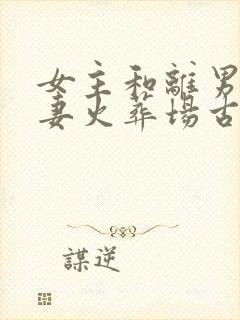 女主和離男
妻火葬場古
謀逆